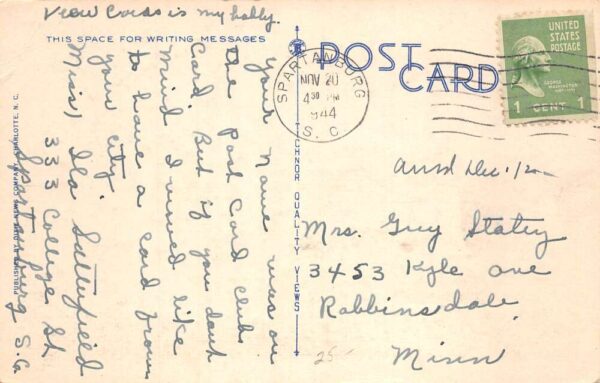 View Cards is my hobby.
THIS SPACE FOR WRITING MESSAGES
your name was on
the post card club
Card. But if you dont
mind I would like
to have a card from
your city.
Miss) Ila Satterfield
333 College St
Spartanburg S.C.
POST
CARD
SPARTANBURG
NOV 20
4 30 PM
1944
S. C.
UNITED
STATES
POSTAGE
GEORGE
WASHINGTON
1 CENT 1
Ansd Dec. 12
Mrs. Guy Statey
3453 Kyle ave
Robbinsdale
Minn
25
TECHNOR QUALITY VIEWS